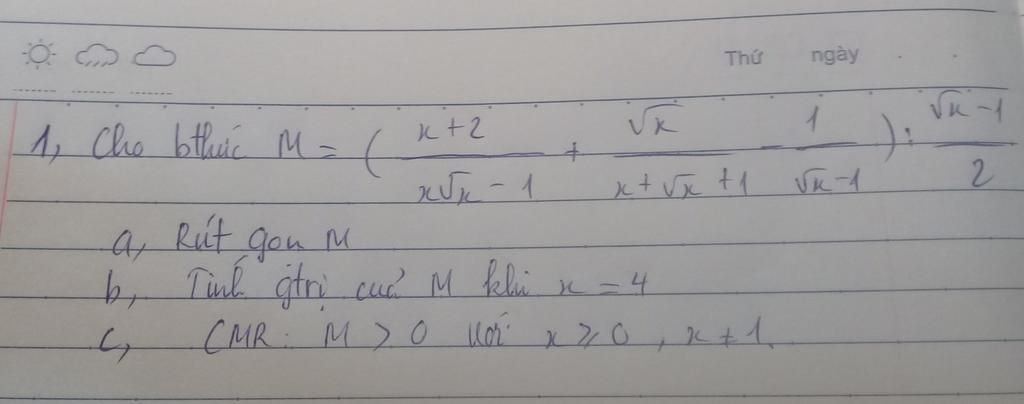 Thứ ngày
1, Cho bthức M = ( \frac{x+2}{x\sqrt{x} - 1} + \frac{\sqrt{x}}{x+\sqrt{x}+1} - \frac{1}{\sqrt{x}-1} ) : \frac{\sqrt{x}-1}{2}
a, Rút gọn M
b, Tính gtrị của M khi x = 4
c, CMR: M > 0 với x ⩾ 0, x ≠ 1.